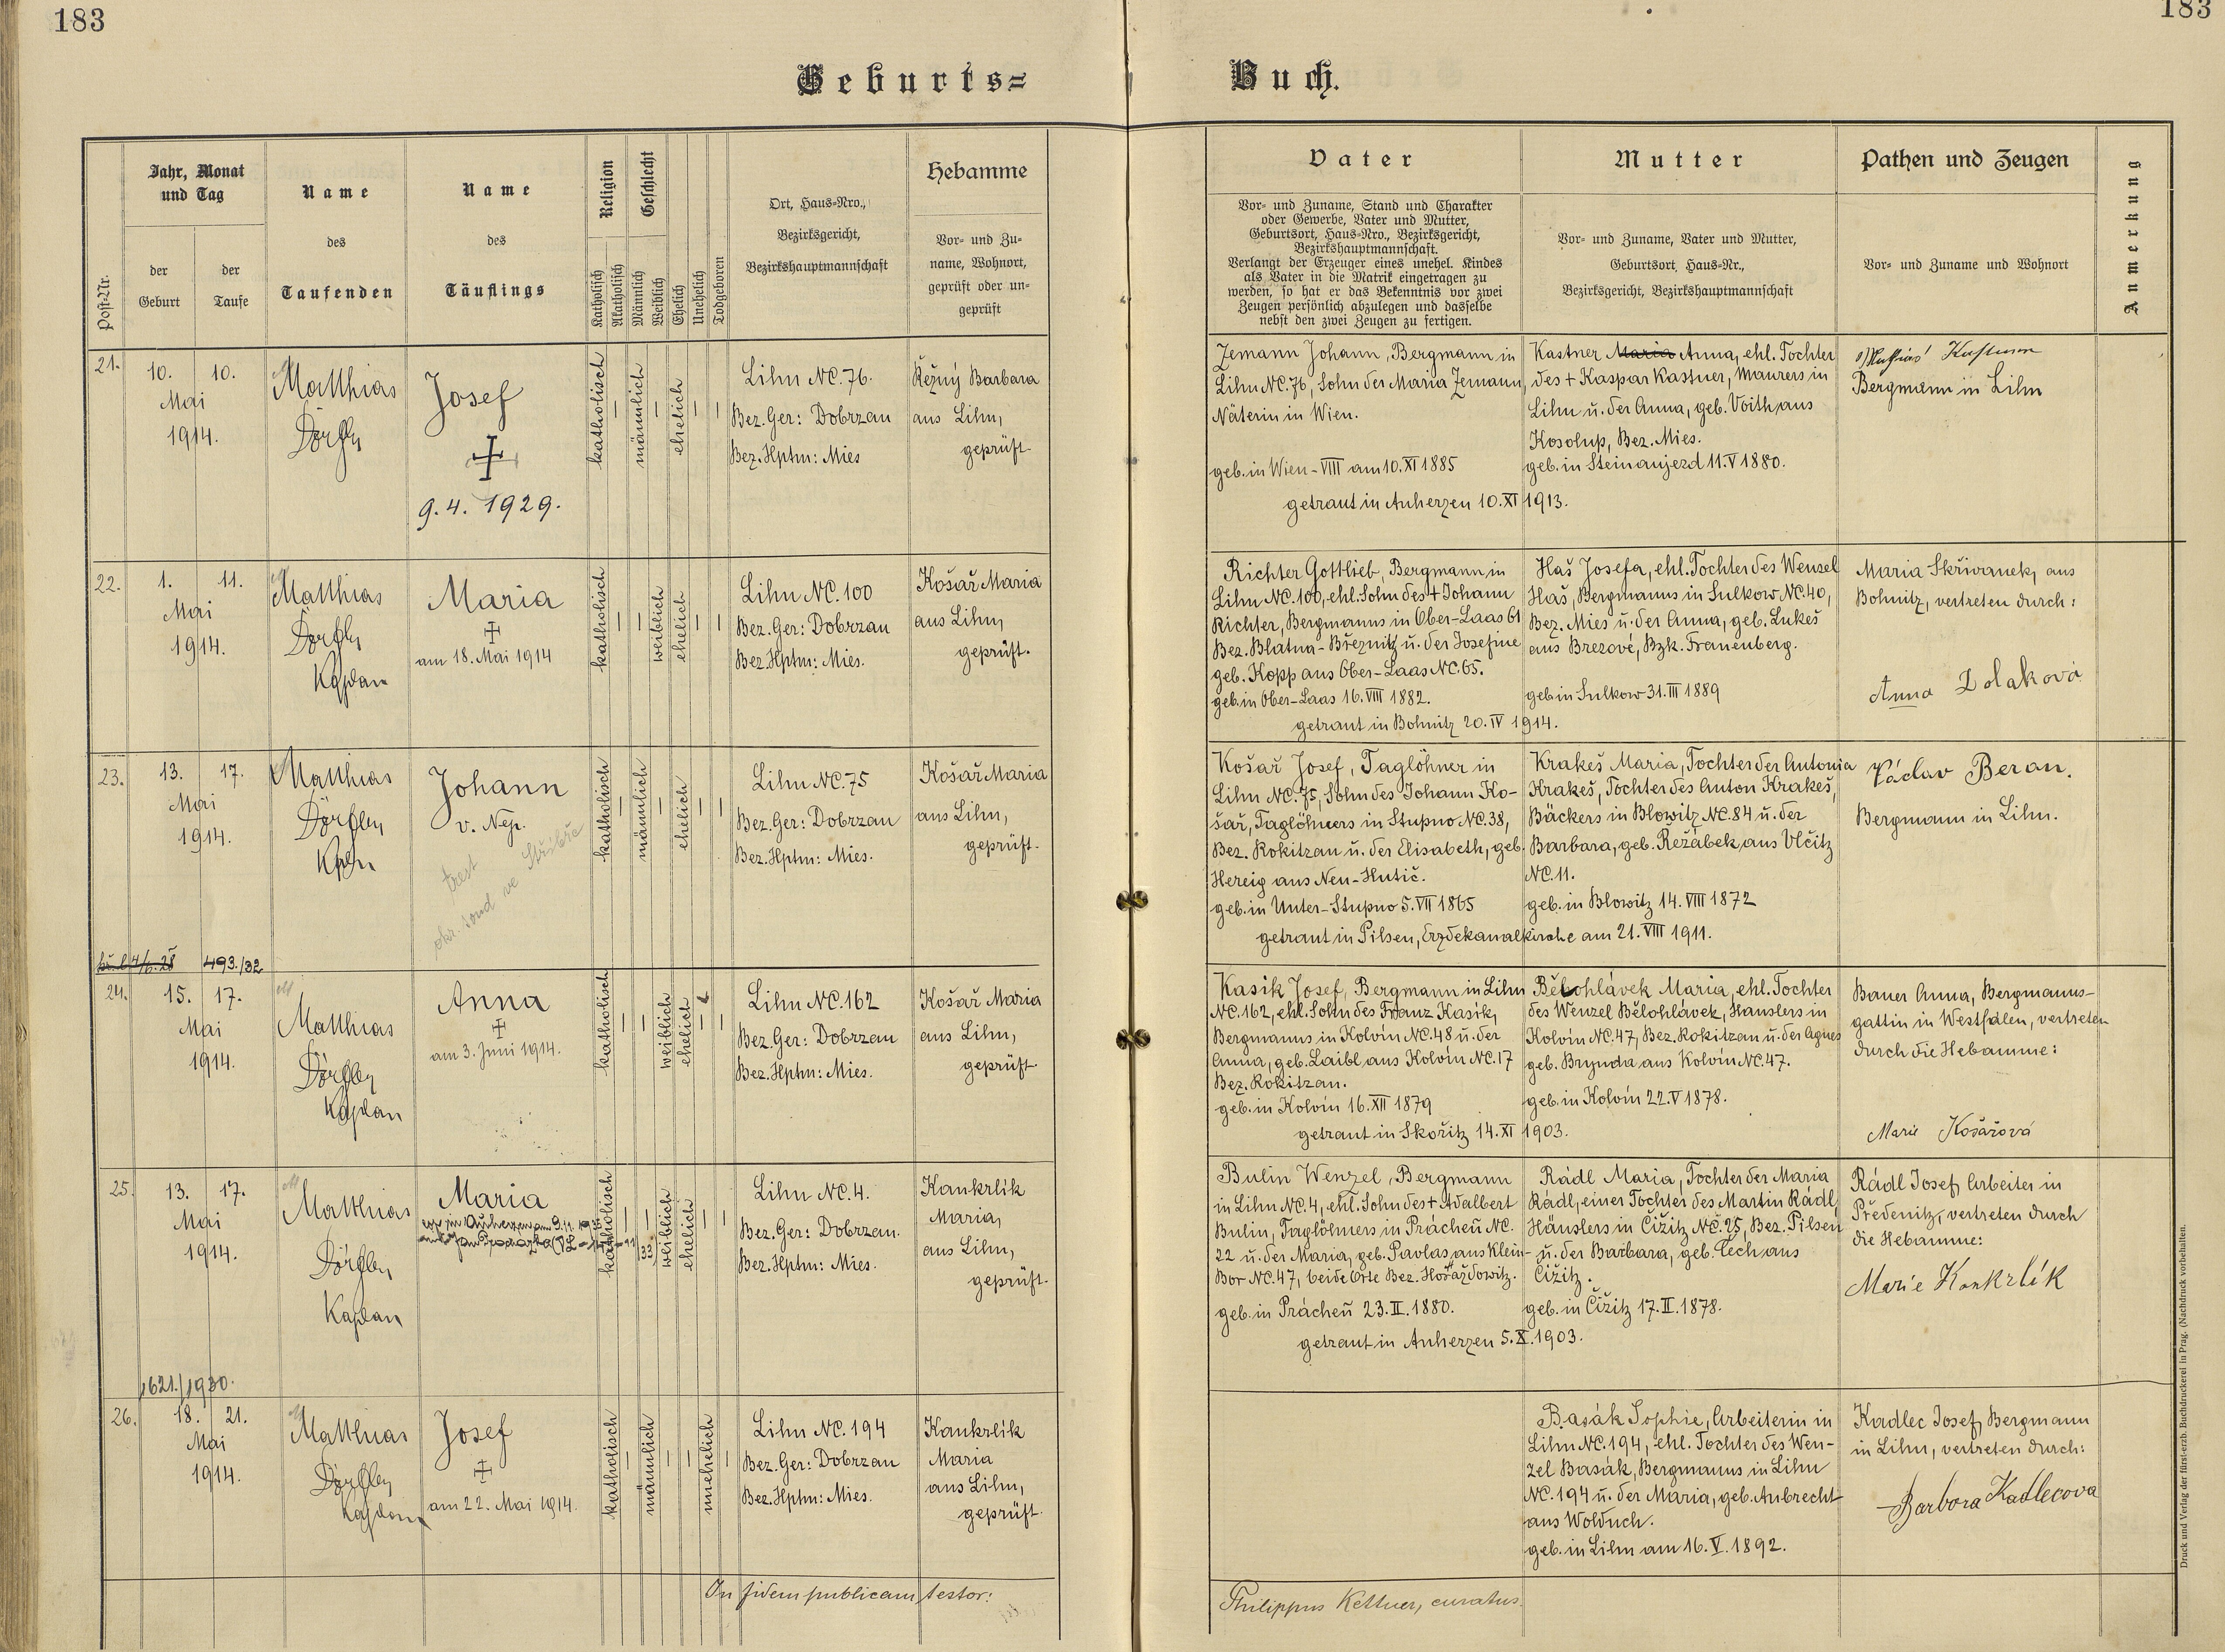 183
183
Geburts=
Buch.
Post-Nr.
Jahr, Monat
und Tag
der
Geburt
der
Taufe
Name
des
Taufenden
Name
des
Täuflings
Religion
Katholisch
Akatholisch
Geschlecht
Männlich
Weiblich
Ehelich
Unehelich
Todgeboren
Ort, Haus-Nro.,
Bezirksgericht,
Bezirkshauptmannschaft
Hebamme
Vor- und Zu-
name, Wohnort,
geprüft oder un-
geprüft
Vater
Vor- und Zuname, Stand und Charakter
oder Gewerbe, Vater und Mutter,
Geburtsort, Haus-Nro., Bezirksgericht,
Bezirkshauptmannschaft.
Verlangt der Erzeuger eines unehel. Kindes
als Vater in die Matrik eingetragen zu
werden, so hat er das Bekenntnis vor zwei
Zeugen persönlich abzulegen und dasselbe
nebst den zwei Zeugen zu fertigen.
Mutter
Vor- und Zuname, Vater und Mutter,
Geburtsort, Haus-Nr.,
Bezirksgericht, Bezirkshauptmannschaft
Pathen und Zeugen
Vor- und Zuname und Wohnort
Anmerkung
21.
10. 10.
Mai
1914.
Matthias
Dörfler
Josef
9. 4. 1929.
katholisch
männlich
ehelich
Lihn NC. 76.
Bez. Ger: Dobrzan
Bez. Hptm: Mies
Řežný Barbara
aus Lihn,
geprüft.
Zemann Johann, Bergmann in
Lihn NC. 76, Sohn der Maria Zemann,
Näterin in Wien.
geb. in Wien - VIII am 10. XI 1885
getraut in Auherzen 10. XI 1913.
Kastner Maria Anna, ehl. Tochter
des + Kaspar Kastner, Maurers in
Lihn u. der Anna, geb. Voith, aus
Kosolup, Bez. Mies.
geb. in Steinaujezd 11. V 1880.
Bergmann in Lihn
22.
1. 11.
Mai
1914.
Matthias
Dörfler
Kaplan
Maria
am 18. Mai 1914
katholisch
weiblich
ehelich
Lihn NC. 100
Bez. Ger: Dobrzan
Bez. Hptm: Mies.
Košař Maria
aus Lihn,
geprüft.
Richter Gottlieb, Bergmann in
Lihn NC. 100, ehl. Sohn des + Johann
Richter, Bergmanns in Ober-Laas 61
Bez. Blatna-Březnitz u. der Josefine
geb. Kopp aus Ober-Laas NC. 65.
geb. in Ober-Laas 16. VIII 1882.
getraut in Bohnitz 20. IV 1914.
Haš Josefa, ehl. Tochter des Wenzel
Haš, Bergmanns in Sulkow NC. 40,
Bez. Mies u. der Anna, geb. Lukeš
aus Brezové, Bzk. Frauenberg.
geb in Sulkow 31. III 1889
Maria Skřivanek, aus
Bohnitz, vertreten durch:
Anna Dolaková
23.
13. 17.
Mai
1914.
Matthias
Dörfler
Kpln
Johann
v. Nep.
trest
okr. soud ve Stříbře
katholisch
männlich
ehelich
Lihn NC. 75
Bez. Ger: Dobrzan
Bez. Hptm: Mies.
Košař Maria
aus Lihn,
geprüft.
Košař Josef, Taglöhner in
Lihn NC. 75, Sohn des Johann Ko-
šař, Taglöhners in Stupno NC. 38,
Bez. Rokitzan u. der Elisabeth, geb.
Hereig aus Neu-Hutič.
geb. in Unter-Stupno 5. VII 1865
getraut in Pilsen, Erzdekanalkirche am 21. VIII 1911.
Krakeš Maria, Tochter der Antonia
Krakeš, Tochter des Anton Krakeš,
Bäckers in Blowitz NC. 84 u. der
Barbara, geb. Režábek, aus Vlčitz
NC. 11.
geb. in Blowitz 14. VIII 1872
Václav Beran.
Bergmann in Lihn.
493./32
24.
15. 17.
Mai
1914.
Matthias
Dörfler
Kaplan
Anna
am 3. Juni 1914.
katholisch
weiblich
ehelich
Lihn NC. 162
Bez. Ger: Dobrzan
Bez. Hptm: Mies.
Košař Maria
aus Lihn,
geprüft.
Kasik Josef, Bergmann in Lihn
NC. 162, ehl. Sohn des Franz Kasik,
Bergmanns in Kolvín NC. 48 u. der
Anna, geb. Laibl aus Kolvín NC. 17
Bez. Rokitzan.
geb. in Kolvín 16. XII 1879
getraut in Skořitz 14. XI 1903.
Bělohlávek Maria, ehl. Tochter
des Wenzel Bělohlávek, Häuslers in
Kolvín NC. 47, Bez. Rokitzan u. der Agnes
geb. Brynda aus Kolvín NC. 47.
geb. in Kolvín 22. V 1878.
Bauer Anna, Bergmanns-
gattin in Westfalen, vertreten
durch die Hebamme:
Marie Košařová
25.
13. 17.
Mai
1914.
Matthias
Dörfler
Kaplan
Maria
katholisch
weiblich
ehelich
Lihn NC. 4.
Bez. Ger: Dobrzan.
Bez. Hptm: Mies.
Kankrlík
Maria,
aus Lihn,
geprüft.
Bulin Wenzel, Bergmann
in Lihn NC. 4, ehl. Sohn des + Adalbert
Bulin, Taglöhners in Prácheň NC.
22 u. der Maria, geb. Pavlas, aus Klein-
Bor NC. 47, beide Orte Bez. Horaždowitz.
geb. in Prácheň 23. II. 1880.
getraut in Auherzen 5. X. 1903.
Rádl Maria, Tochter der Maria
Rádl, einer Tochter des Martin Rádl,
Häuslers in Čižitz NC. 25, Bez. Pilsen
u. der Barbara, geb. Čech aus
Čižitz.
geb. in Čižitz 17. II. 1878.
Rádl Josef, Arbeiter in
Předenitz, vertreten durch
die Hebamme:
Marie Kankrlík
1621./1930.
26.
18. 21.
Mai
1914.
Matthias
Dörfler
Kaplan
Josef
am 22. Mai 1914.
katholisch
männlich
unehelich
Lihn NC. 194
Bez. Ger: Dobrzan
Bez. Hptm: Mies.
Kankrlík
Maria
aus Lihn,
geprüft.
Basák Sophie, Arbeiterin in
Lihn NC. 194, ehl. Tochter des Wen-
zel Basák, Bergmanns in Lihn
NC. 194 u. der Maria, geb. Aubrecht
aus Wolduch.
geb. in Lihn am 16. V. 1892.
Kadlec Josef, Bergmann
in Lihn, vertreten durch:
Barbora Kadlecova
In fidem publicam testor:
Philippus Kettner, curatus.
Druck und Verlag der fürst-erzb. Buchdruckerei in Prag. (Nachdruck vorbehalten.